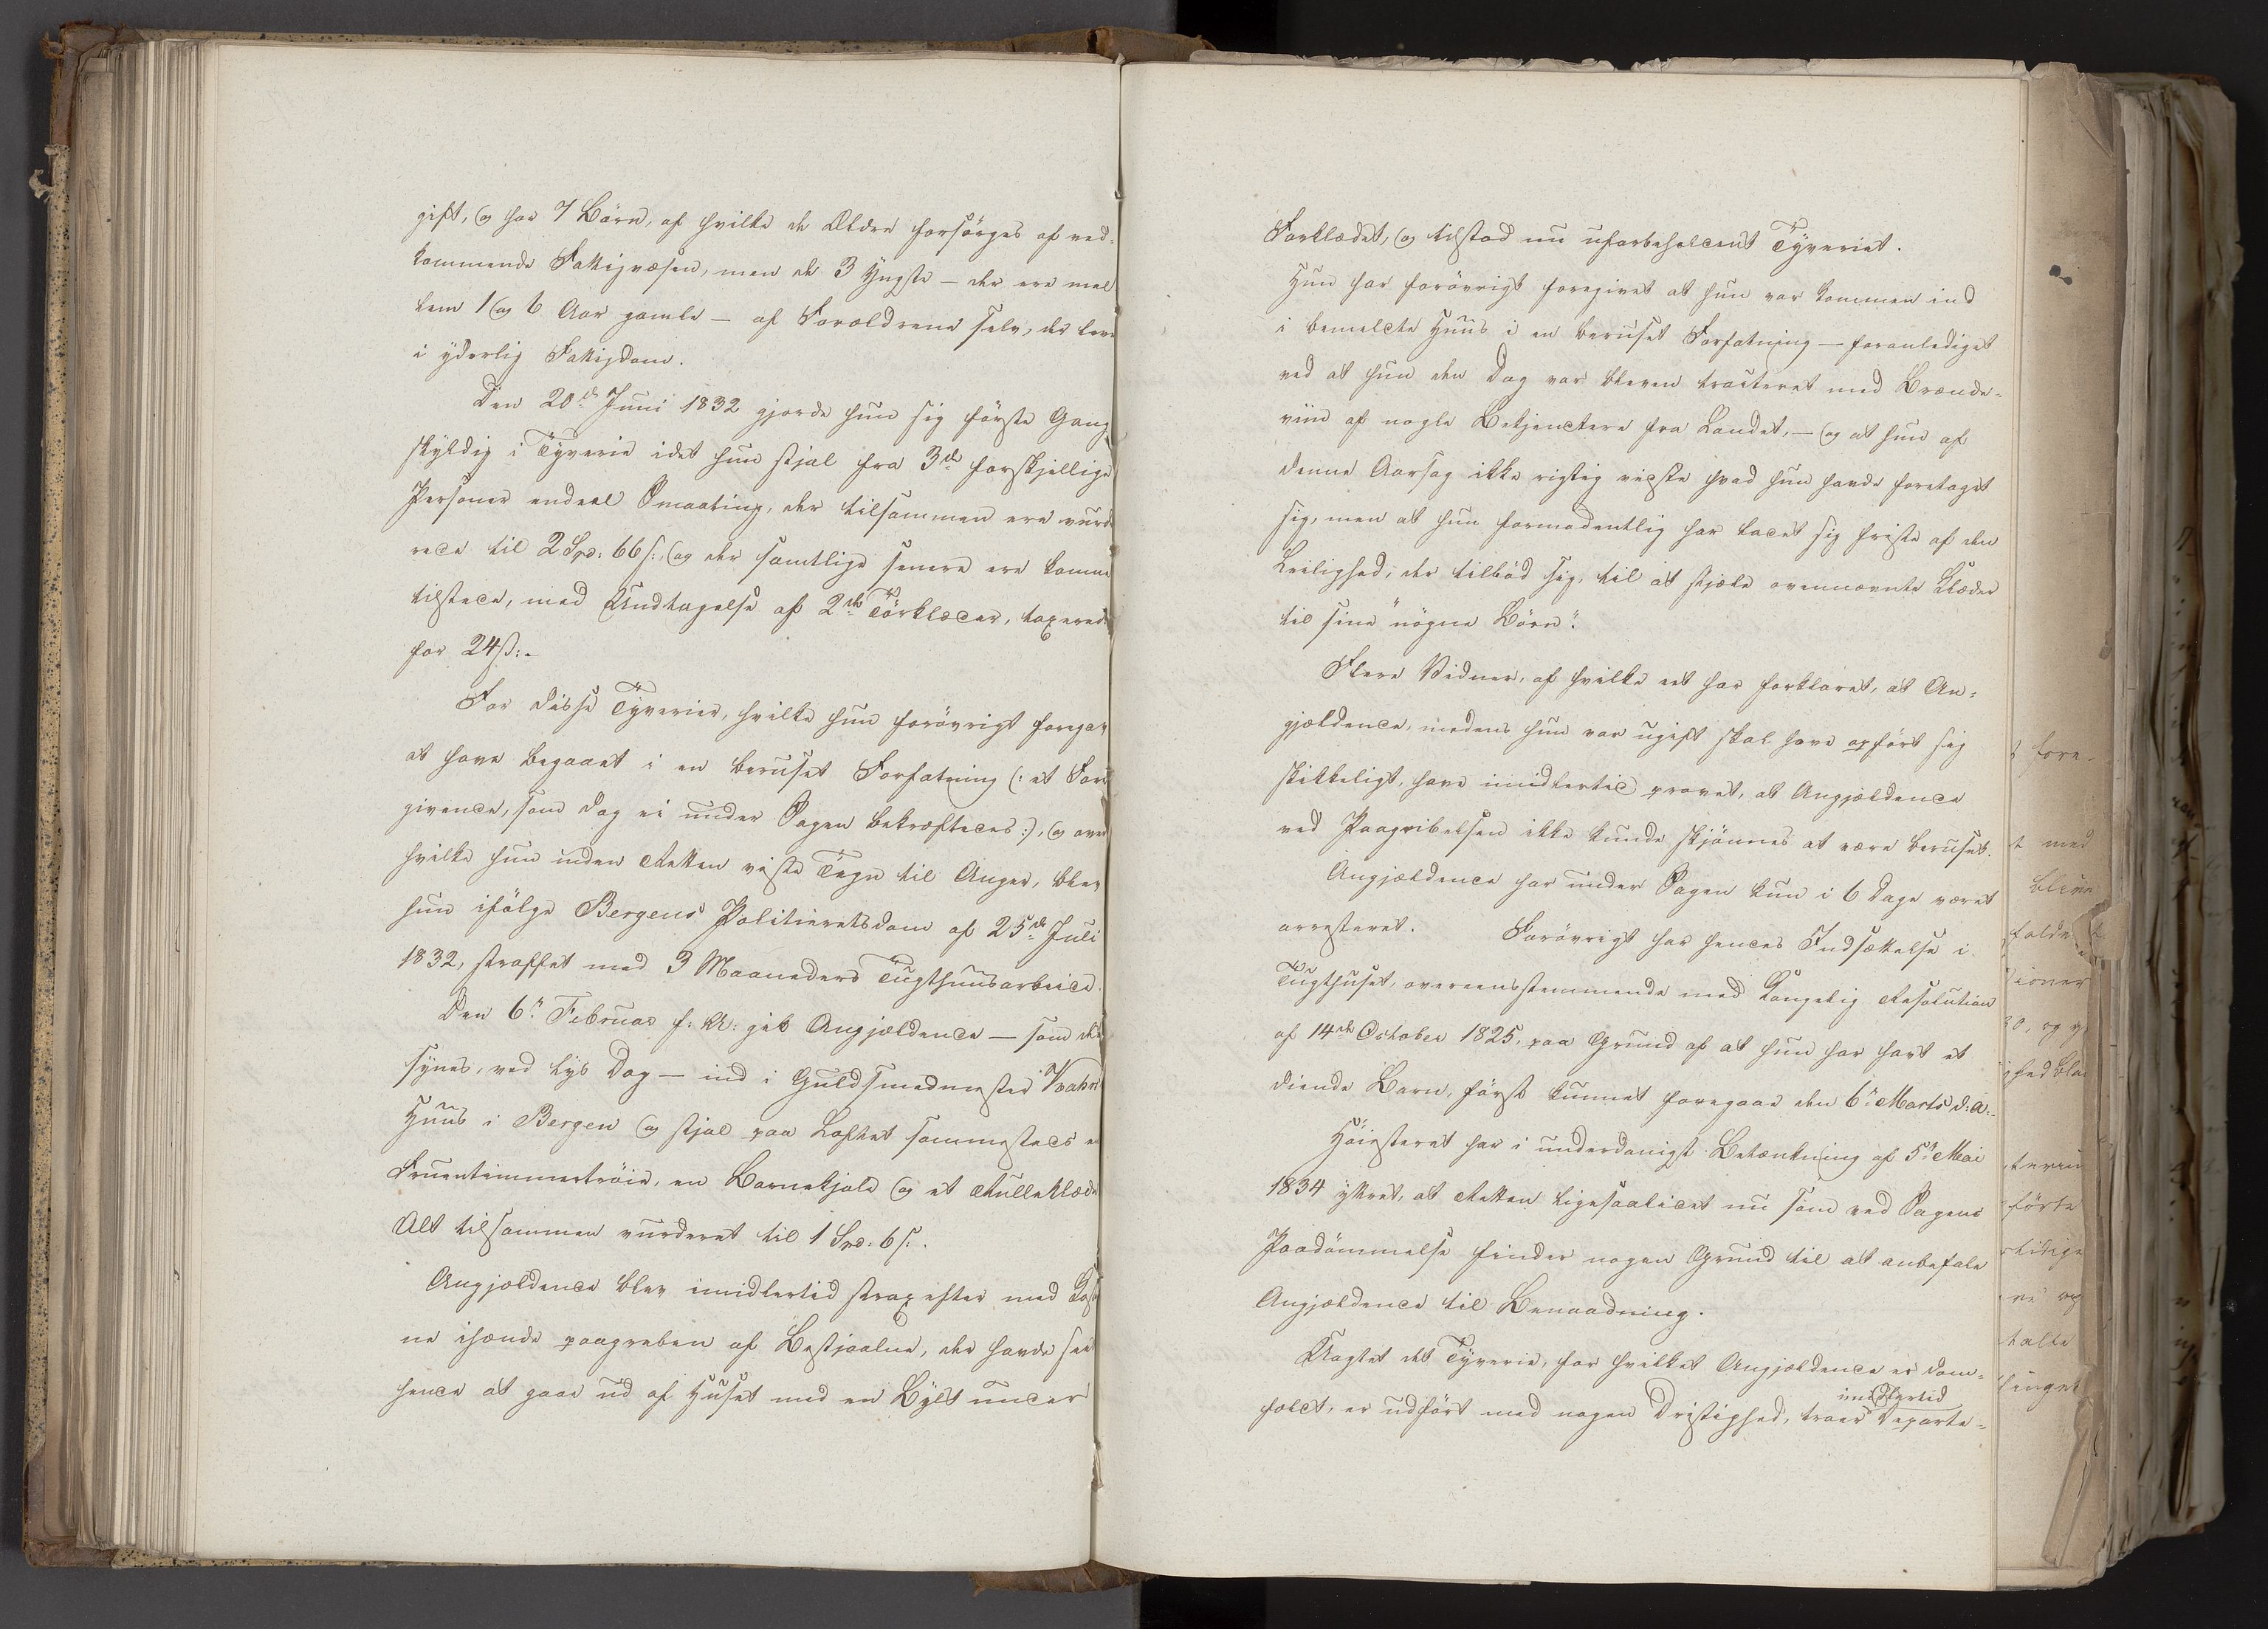 gift, og har 7 Börn, af hvilke de Ældre forsörges af ved-
kommende Fattigvæsen, men de 3 Yngste – der ere mel
lem 1 og 6 Aar gamle – af Forældrene selv, der leve
i yderlig Fattigdom.
Den 20de Juni 1832 gjorde hun sig förste Gang
skyldig i Tyverie idet hun stjal fra 3de forskjellige
Personer endeel Smaating, der tilsammen ere vurde
rede til 2 Spd: 66 s:, og der samtlige senere ere komne
tilstede, med Undtagelse af 2de Törklæder, taxerede
for 24 ß:-
For disse Tyverier, hvilke hun forövrigt foregav
at have begaaet i en beruset Forfatning (: et Fore
givende, som dog ei under Sagen bekræftedes :), og over
hvilke hun inden Retten viste Tegn til Anger, blev
hun ifölge Bergens Politieretsdom af 25de Juli
1832, straffet med 3 Maaneders Tugthuusarbeide.
Den 6te Februar f: A: gik Angjældende – som det
synes, ved lys Dag – ind i Guldsmedmester
Huus i Bergen og stjal paa Loftet sammesteds en
Fruentimmertröie, en Barnekjole og et Rulleklæde
Alt tilsammen vurderet til 1 Spd: 6 s:.
Angjældende blev imidlertid strax efter med Kost
ne ihænde paagreben af Bestjaalne, der havde seet
hende at gaae ud af Huset med en Bylt under
Forklædet, og tilstod nu uforbeholdent Tyveriet.
Hun har forövrigt foregivet at hun var kommen ind
i bemeldte Huus i en beruset Forfatning – foranlediget
ved at hun den Dag var bleven tracteret med Brænde-
viin af nogle Bekjendtere fra Landet, – og at hun af
denne Aarsag ikke rigtig vidste hvad hun havde foretaget
sig, men at hun formodentlig har ladet sig friste af den
Leilighed, der tilböd sig, til at stjæle ovennævnte Klæder
til sine "nögne Börn".
Flere Vidner, af hvilke eet har forklaret, at An-
gjældende, medens hun var ugift skal have opfört sig
skikkeligt, have imidlertid provet, at Angjældende
ved Paagribelsen ikke kunde skjönnes at være beruset.
Angjældende har under Sagen kun i 6 Dage været
arresteret. Forövrigt har hendes Indsættelse i
Tugthuset, overeensstemmende med Kongelig Resolution
af 14de October 1825, paa Grund af at hun har havt et
diende Barn, först kunnet foregaae den 6te Marts d: A:.
Höiesteret har i underdanigst Betænkning af 5te Mai
1834 yttret, at Retten ligesaalidet nu som ved Sagens
Paadömmelse finder nogen Grund til at anbefale
Angjældende til Benaadning.
Uagtet det Tyverie, for hvilket Angjældende er dom-
fældt, er udfört med nogen Dristighed, troer imidlertid Departe-